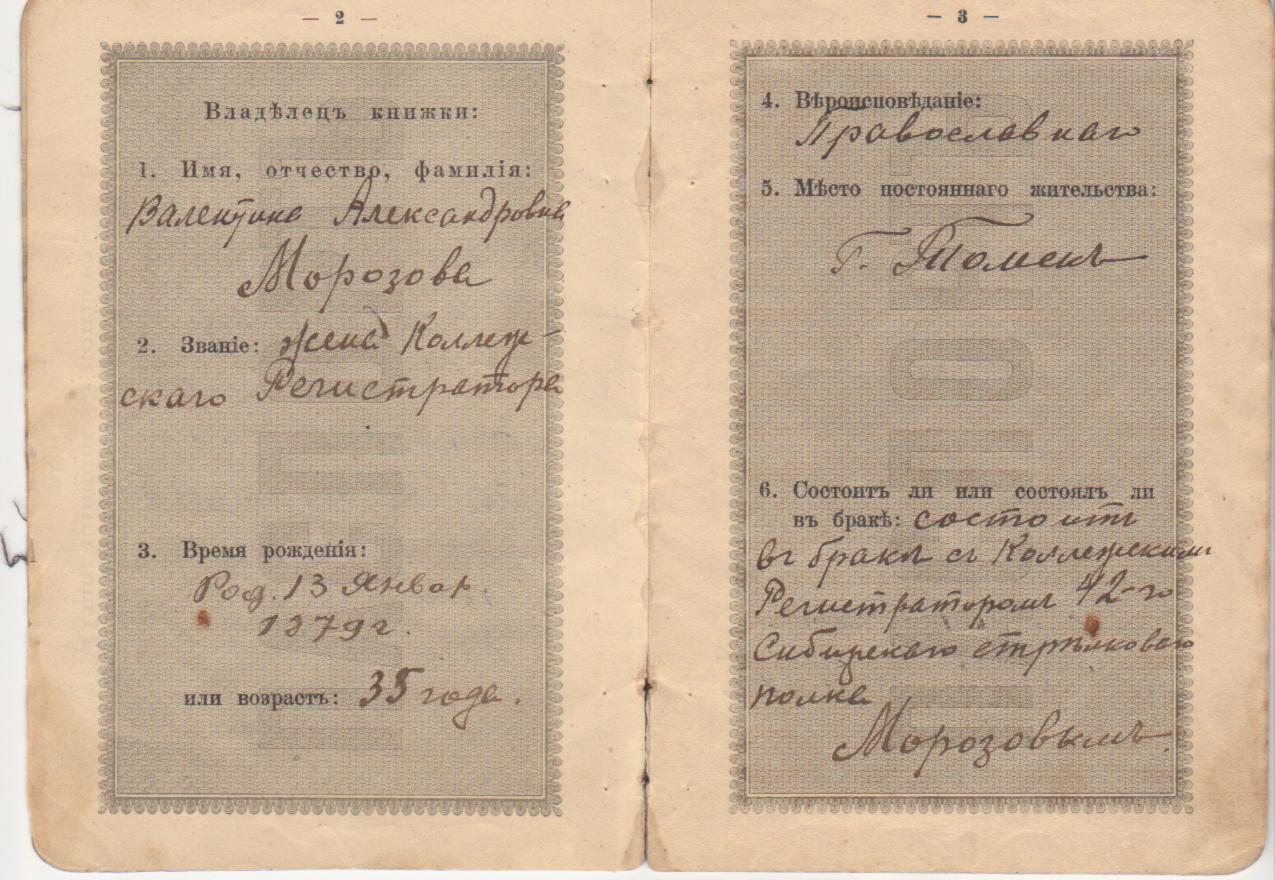 — 2 —
Владѣлецъ книжки:
1. Имя, отчество, фамилія:
Валентина Александровна
Морозова
2. Званіе: жена Коллеж-
скаго Регистратора
3. Время рожденія:
Род. 13 Январ.
1879 г.
или возрастъ: 35 года.
— 3 —
4. Вѣроисповѣданіе:
Православнаго
5. Мѣсто постояннаго жительства:
Г. Томскъ
6. Состоитъ ли или состоялъ ли
въ бракѣ: состоитъ
въ бракѣ съ Коллежскимъ
Регистраторомъ 42-го
Сибирскаго стрѣлковаго
полка
Морозовымъ.